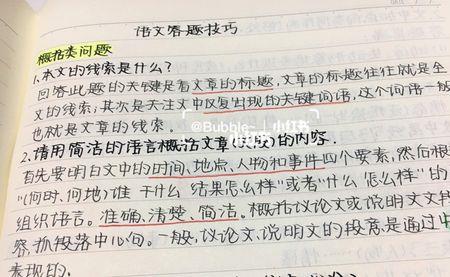 语文答题技巧
概括类问题
1.本文的线索是什么?
回答此题的关键是看文章的标题,文章的标题往往就是全
文的线索;其次是关注文中反复出现的关键词语,这个词语一般
也就是文章的线索.
@Bubble_ 小红书
2.请用简洁的语言概括文章(段)的内容.
首先要明白文中的时间、地点、人物和事件四个要素,然后根
"(何时、何地)谁 干什么 结果怎么样"或者"什么 怎么样"的
组织语言。准确、清楚、简洁。概括议论文或说明文文段
察,抓段落中心句。一般,议论文、说明文的段意是通过中
表现的.